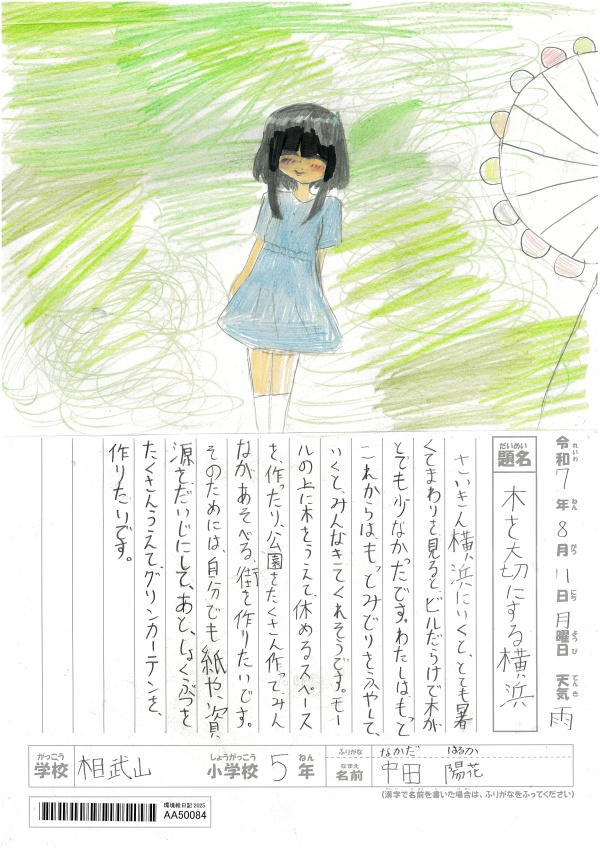 令和7年8月11日月曜日 天気 雨
れいわ ねん がつ にち ようび てんき
だいめい
題名 木を大切にする横浜
さいきん横浜にいくと、とても暑
くてまわりを見ると、ビルだらけで木が
とても少なかったです。わたしは、もっと
これからは、もっとみどりをふやして、
いくと、みんなきてくれそうです。モー
ルの上に木をうえて、休めるスペース
を、作ったり、公園をたくさん作って、みん
ながあそべる、街を作りたいです。
そのためには、自分でも紙や、資
源をだいじにして、あと、しょくぶつを
たくさんうえて、グリンカーテンを、
作りたいです。
がっこう しょうがっこう ねん
学校 相武山 小学校 5年
ふりがな なかだ はるか
なまえ
名前 中田 陽花
(漢字で名前を書いた場合は、ふりがなをふってください)
環境絵日記 2025
AA50084